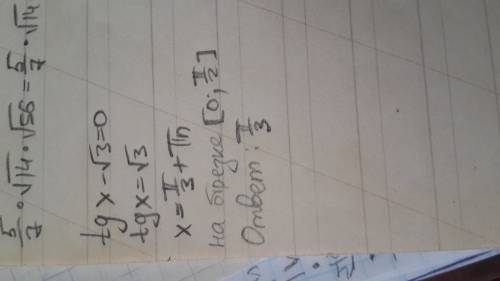 5/7 · √14 · √56 = 5/7 · √14
tg x - √3 = 0
tg x = √3
x = π/3 + πn
на отрезке [0; π/2]
Ответ: π/3